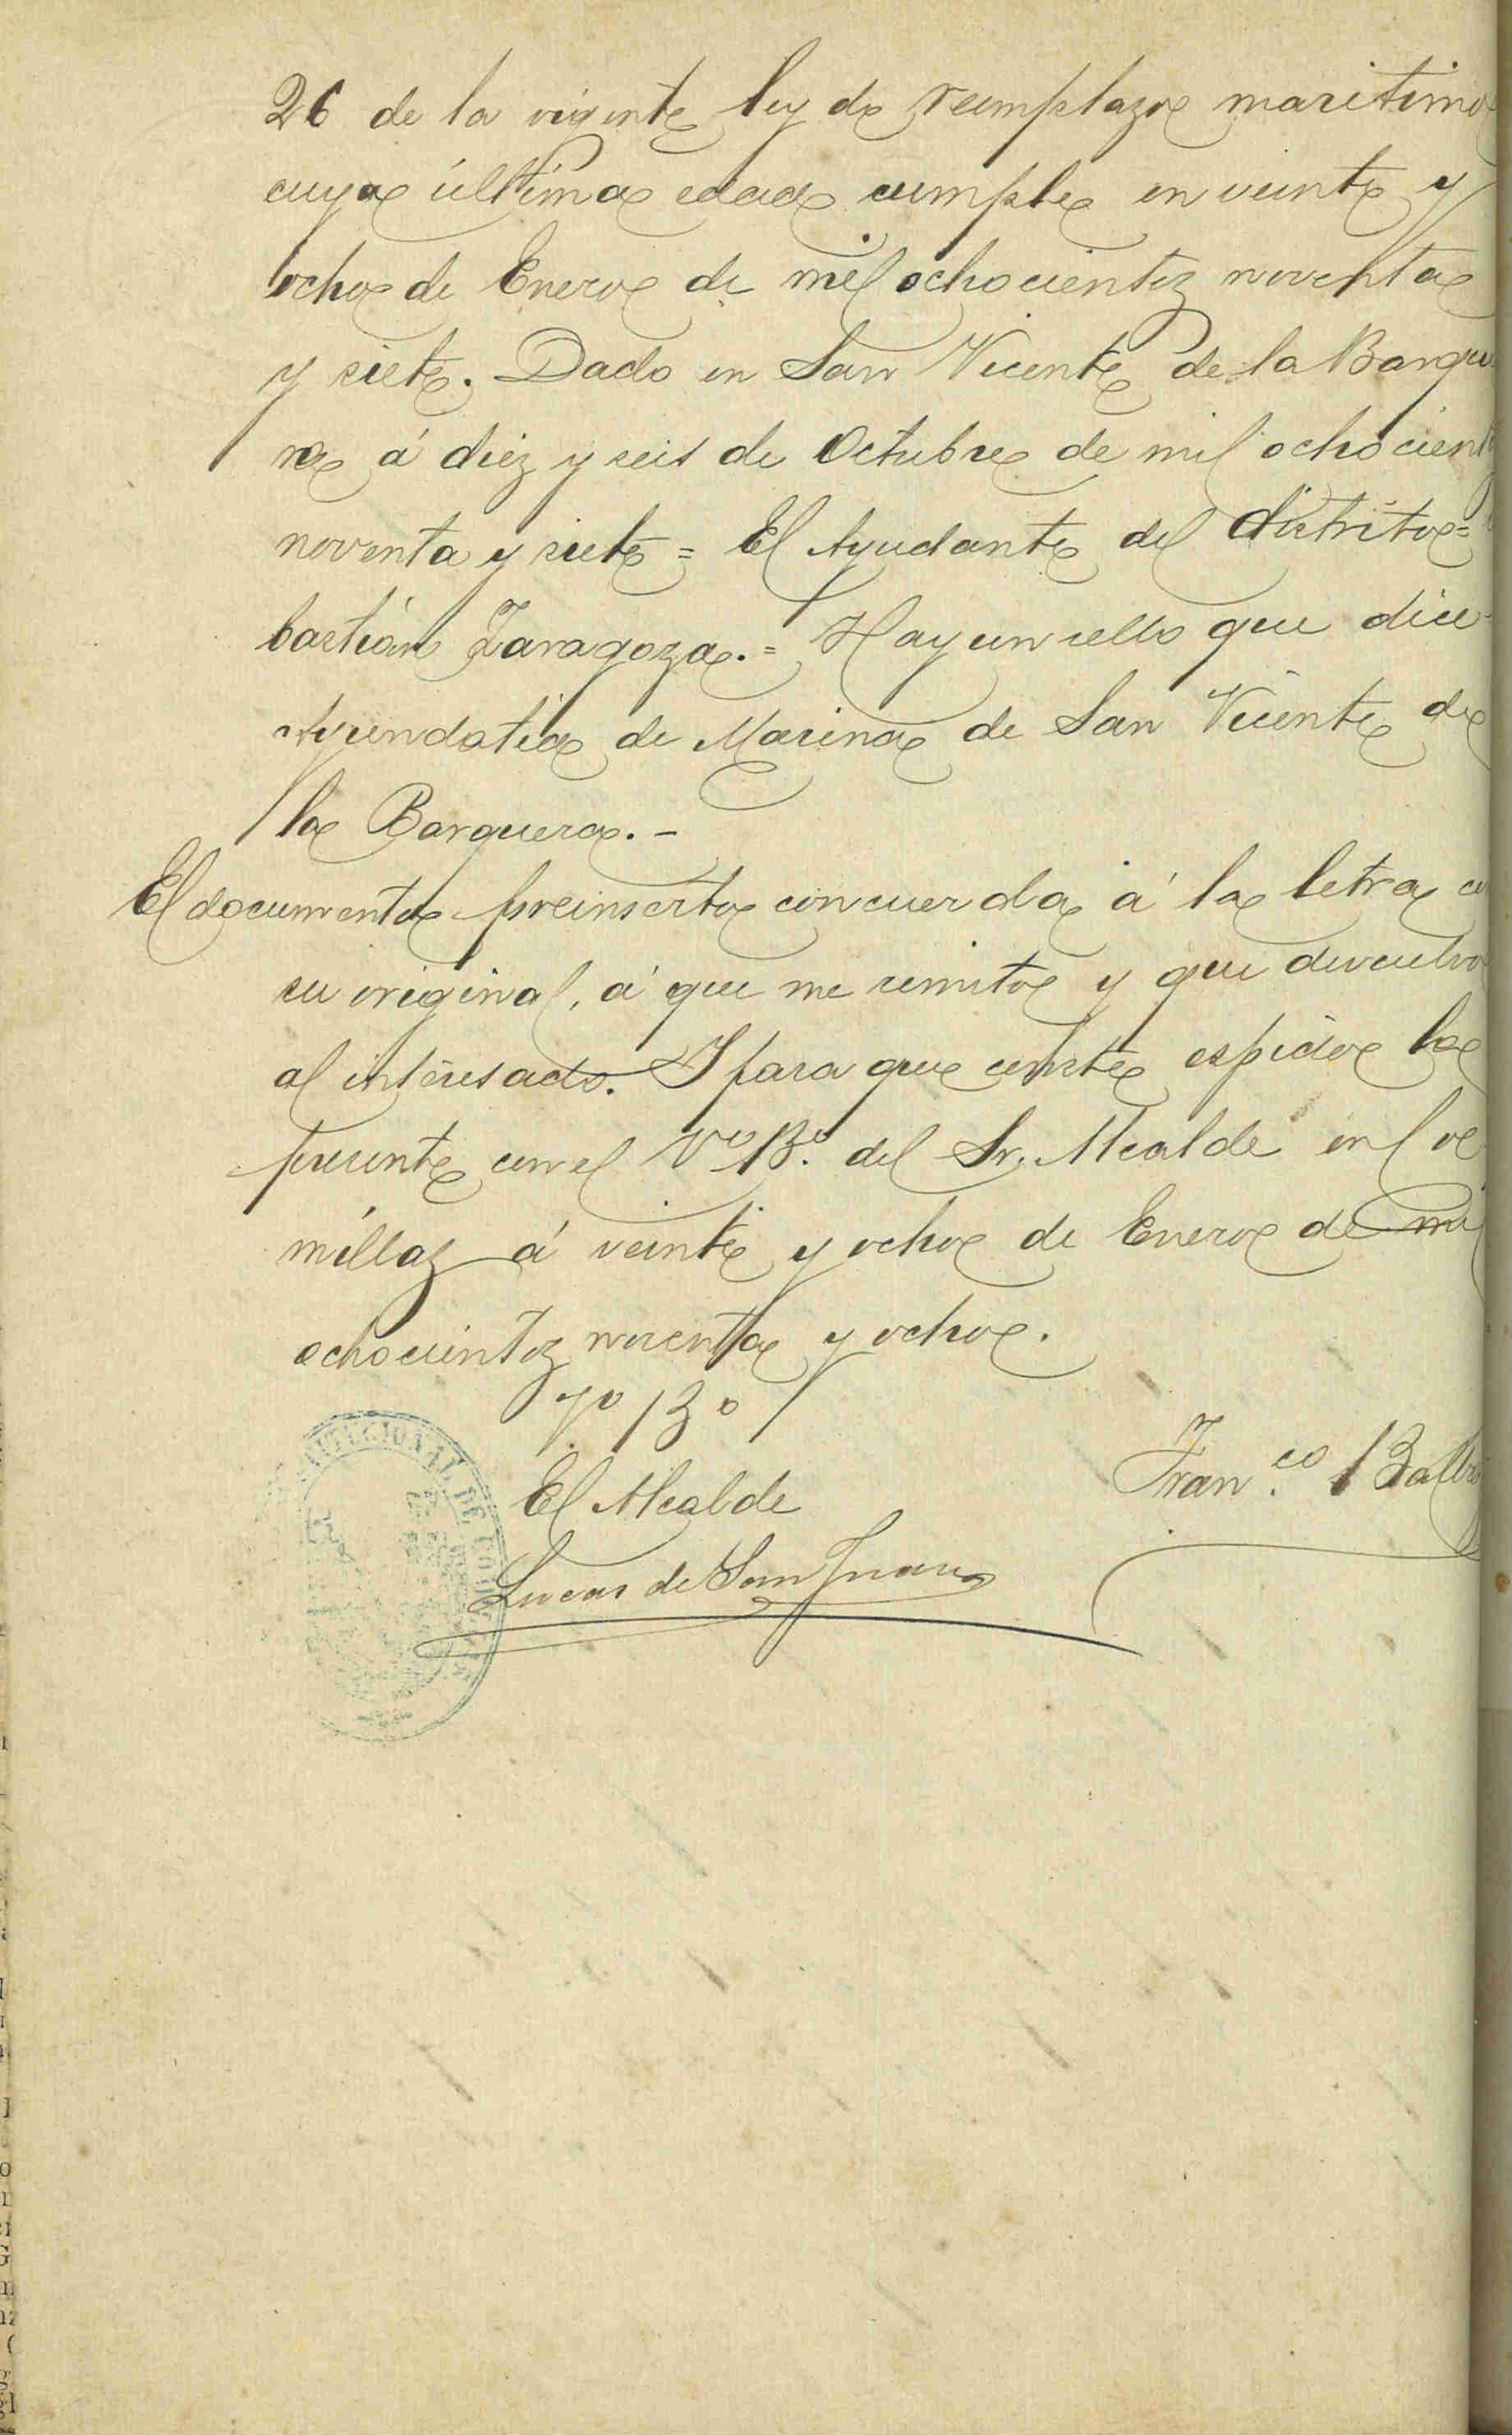 26 de la vigente ley de reemplazos maritimo
cuya última edad cumple en veinte y
ocho de Enero de mil ochocientos noventa
y siete. Dado en San Vicente de la Barque
ra á diez y seis de Octubre de mil ochocient
noventa y siete = El Ayudante del distrito =
bastián Zaragoza. = Hay un sello que dice
Ayundatia de Marina de San Vicente de
la Barquera. -
El documento preinserto concuerda á la letra co
su original, á que me remito y que devuelvo
al interesado. Y para que conste espido la
presente con el Vº Bº. del Sr. Alcalde en Co
millas á veinte y ocho de Enero de mil
ochocientos noventa y ocho.
Vº Bº
El Alcalde
Fran.co
Lucas de San Juan
CIONAL DE CO